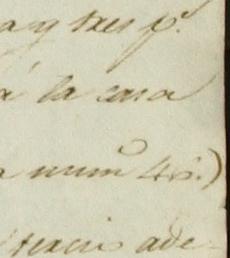 a y tres p.^s
á la casa
num.^o 46.)
tercio ade-